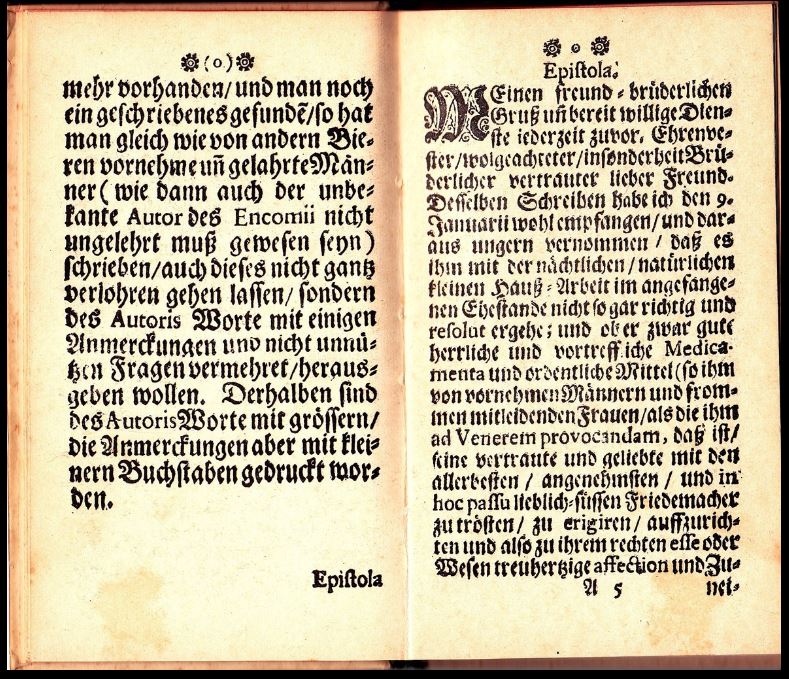 (o)
mehr vorhanden/ und man noch
ein geschriebenes gefundē/ so hat
man gleich wie von andern Bie-
ren vornehme uñ gelahrte Män-
ner (wie dann auch der unbe-
kante Autor des Encomii nicht
ungelehrt muß gewesen seyn)
schrieben/ auch dieses nicht gantz
verlohren gehen lassen/ sondern
des Autoris Worte mit einigen
Anmerckungen und nicht unnü-
tzen Fragen vermehret/ heraus-
geben wollen. Derhalben sind
des Autoris Worte mit grössern/
die Anmerckungen aber mit klei-
nern Buchstaben gedruckt wor-
den.
Epistola
o
Epistola.
MEinen freund-brüderlichen
Gruß uñ bereit willige Dien-
ste iederzeit zuvor. Ehrenve-
ster/ wolgeachteter/ insonderheit Brü-
derlicher vertrauter lieber Freund.
Desselben Schreiben habe ich den 9.
Januarii wohl empfangen/ und dar-
aus ungern vernommen/ daß es
ihm mit der nächtlichen/ natürlichen
kleinen Hauß-Arbeit im angefange-
nen Ehestande nicht so gar richtig und
resolut ergehe; und ob er zwar gute
herrliche und vortreffliche Medica-
menta und ordentliche Mittel (so ihm
von vornehmen Männern und from-
men mitleidenden Frauen/ als die ihm
ad Venerem provocandam, daß ist/
seine vertraute und geliebte mit den
allerbesten/ angenehmsten/ und in
hoc passu lieblich-süssen Friedemacher
zu trösten/ zu erigiren/ auffzurich-
ten und also zu ihrem rechten esse oder
Wesen treuhertzige affection und Zu-
A 5 nei-